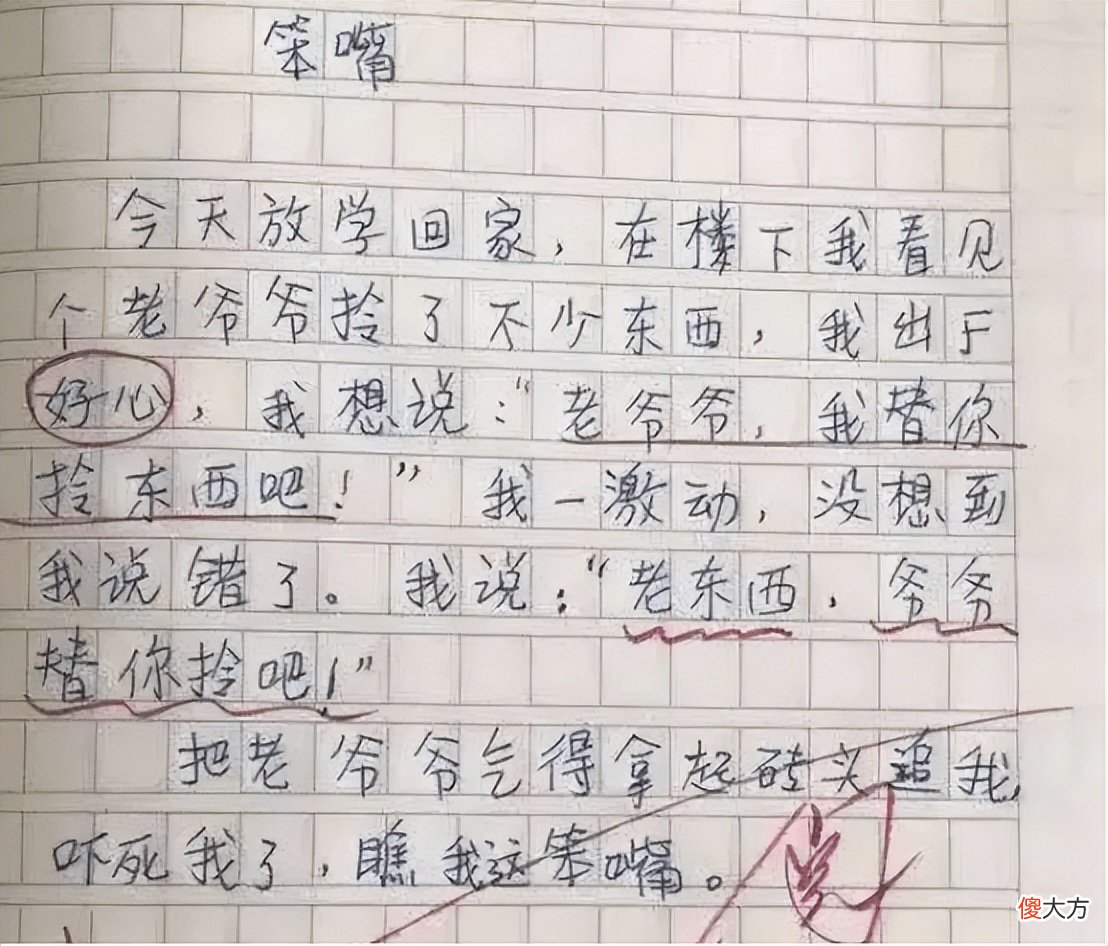 笨嘴
今天放学回家，在楼下我看见
个老爷爷拎了不少东西，我出于
好心，我想说：“老爷爷，我替你
拎东西吧！”我一激动，没想到
我说错了。我说：“老东西，爷爷
替你拎吧！”
把老爷爷气得拿起砖头追我，
吓死我了，瞧我这笨嘴。
傻大方